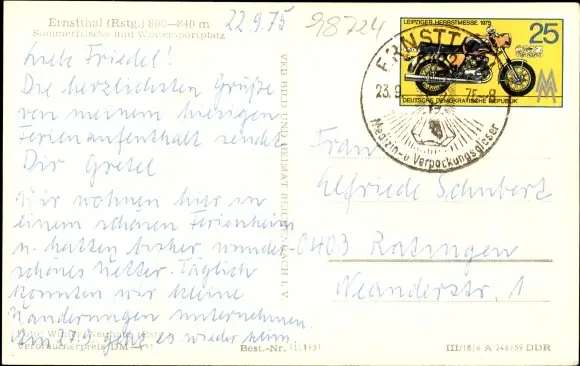 Ernstthal (Rstg.) 800—840 m
Sommerfrische und Wintersportplatz
22.9.75
98724
Liebe Friedel!
Die herzlichsten Grüße
von meinem hiesigen
Ferienaufenthalt sendet
Dir Gretel
Wir wohnen hier in
einem schönen Ferienheim
u. hatten bisher wunder-
schönes Wetter. Täglich
konnten wir kleine
Wanderungen unternehmen.
Am 27.9. geht es wieder heim.
Verbraucherpreis DM
VEB BILD UND HEIMAT REICHENBACH I. V.
Best.-Nr.
LEIPZIGER HERBSTMESSE 1975
25
DEUTSCHE DEMOKRATISCHE REPUBLIK
MM
ERNSTTH
23.9.
75-8
Medizin- u Verpackungsgläser
Frau
Elfriede Schubert
0403 Ratingen
Neanderstr. 1
III/18/6 A 246/59 DDR